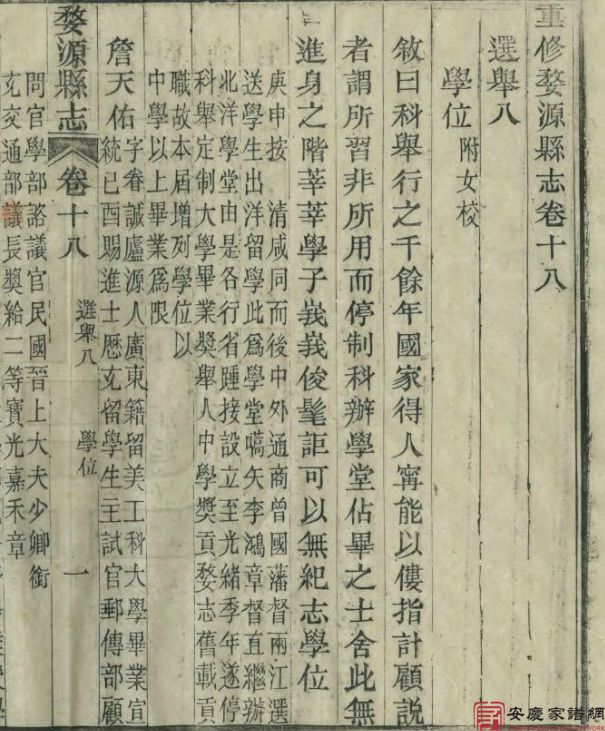 重修婺源縣志卷十八
選舉八
學位 附女校
敘曰科舉行之千餘年國家得人甯能以僂指計顧說
者謂所習非所用而停制科辦學堂佔畢之士舍此無
進身之階莘莘學子峩峩俊髦詎可以無紀志學位
庚申按 清咸同而後中外通商曾國藩督兩江選
送學生出洋留學此爲學堂嚆矢李鴻章督直繼辦
北洋學堂由是各行省踵接設立至光緒季年遂停
科舉定制大學畢業獎舉人中學獎貢婺志舊載貢
職故本屆增列學位以
中學以上畢業爲限
詹天佑 字眷誠廬源人廣東籍留美工科大學畢業宣
統己酉賜進士歷充留學生主試官郵傳部顧
婺源縣志 卷十八 選舉八 學位 一
問官學部諮議官民國晉上大夫少卿銜
充交通部議長獎給二等寶光嘉禾章
安慶家譜網